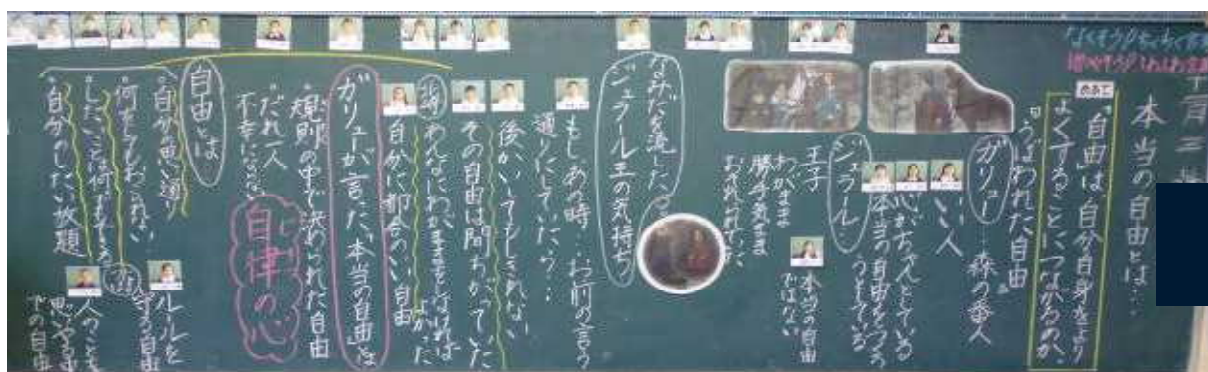 なくそう!ちくちく言葉
増やそう!ふわふわ言葉
十二月三
本当の自由とは・・・
めあて
「自由」は自分自身をより
よくすることにつながるのか。
「うばわれた自由」
ガリュー・・・森の番人
いい人
心がちゃんとしている
本当の自由を
ジェラール
王子
わがまま
勝手気まま
本当の自由
ではない
なみだを流した
ジェラール王の気持ち
もしあの時・・・お前の言う
通りにしていたら・・・
後かいしてもしきれない
その自由は間ちがっていた
あんなにわがままをしなければ
よかった
自分に都合のいい自由
ガリューが言った「本当の自由」は
規則の中で決められた自由
だれ一人
不幸にならない
自律の心
自由とは
自分の思い通り
何をしてもおこられない
したいことは何でもできる
自分のしたい放題
ルールを
守る自由
人のことを
思いやる中
での自由